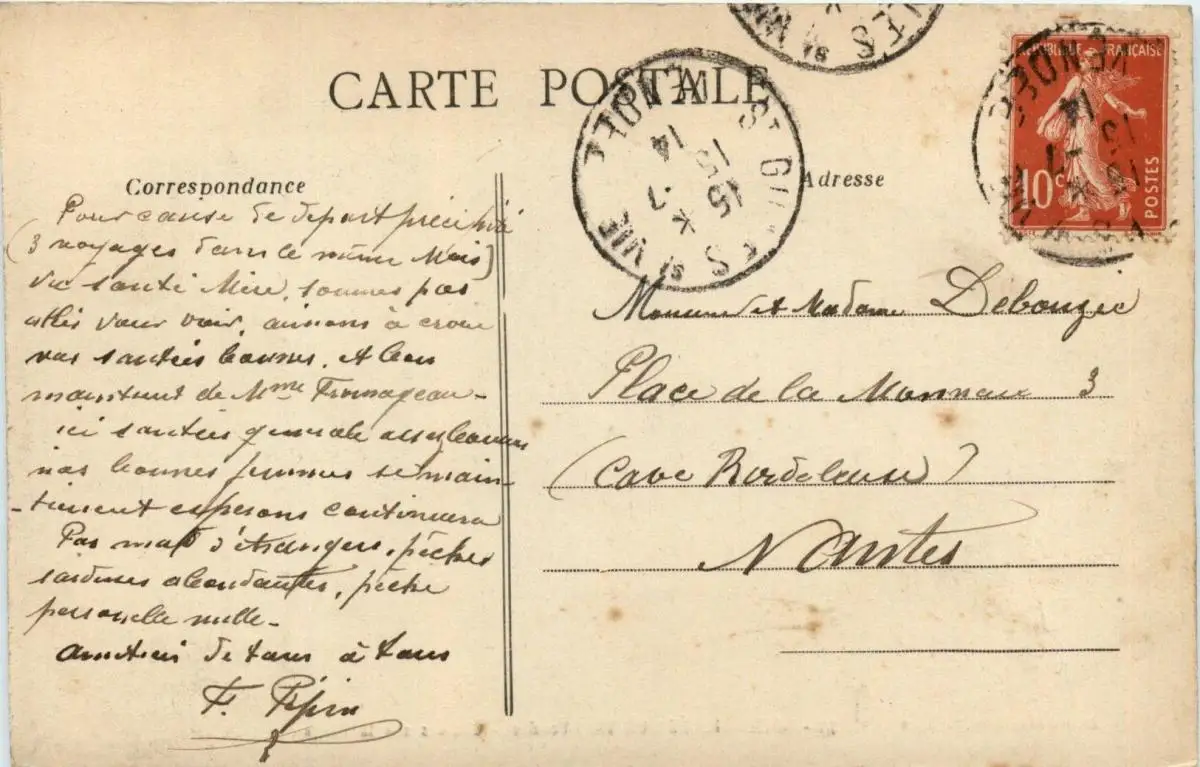 CARTE POSTALE
Correspondance
Pour cause de depart précipité
(3 voyages dans le même Mois)
vu santé Mère, sommes pas
allés vous voir, aimons à croire
vos santées bonnes. A bon
maintient de Mme Fromageau-
ici santées generale assez bonnes
nos bonnes femmes se main-
-tiennent esperons continuera
Pas mal d'étrangers, pêches
sardines abondantes, pêche
personelle nulle-
Amitiés de tous à tous
F. Pépin
Adresse
Monsieur et Madame Debouzec
Place de la Monnaie 3
(Cave Bordelaise)
Nantes
ST GILLES S/ VIE
VENDEE
15 15
* 7
14
REPUBLIQUE FRANÇAISE
10 C
POSTES